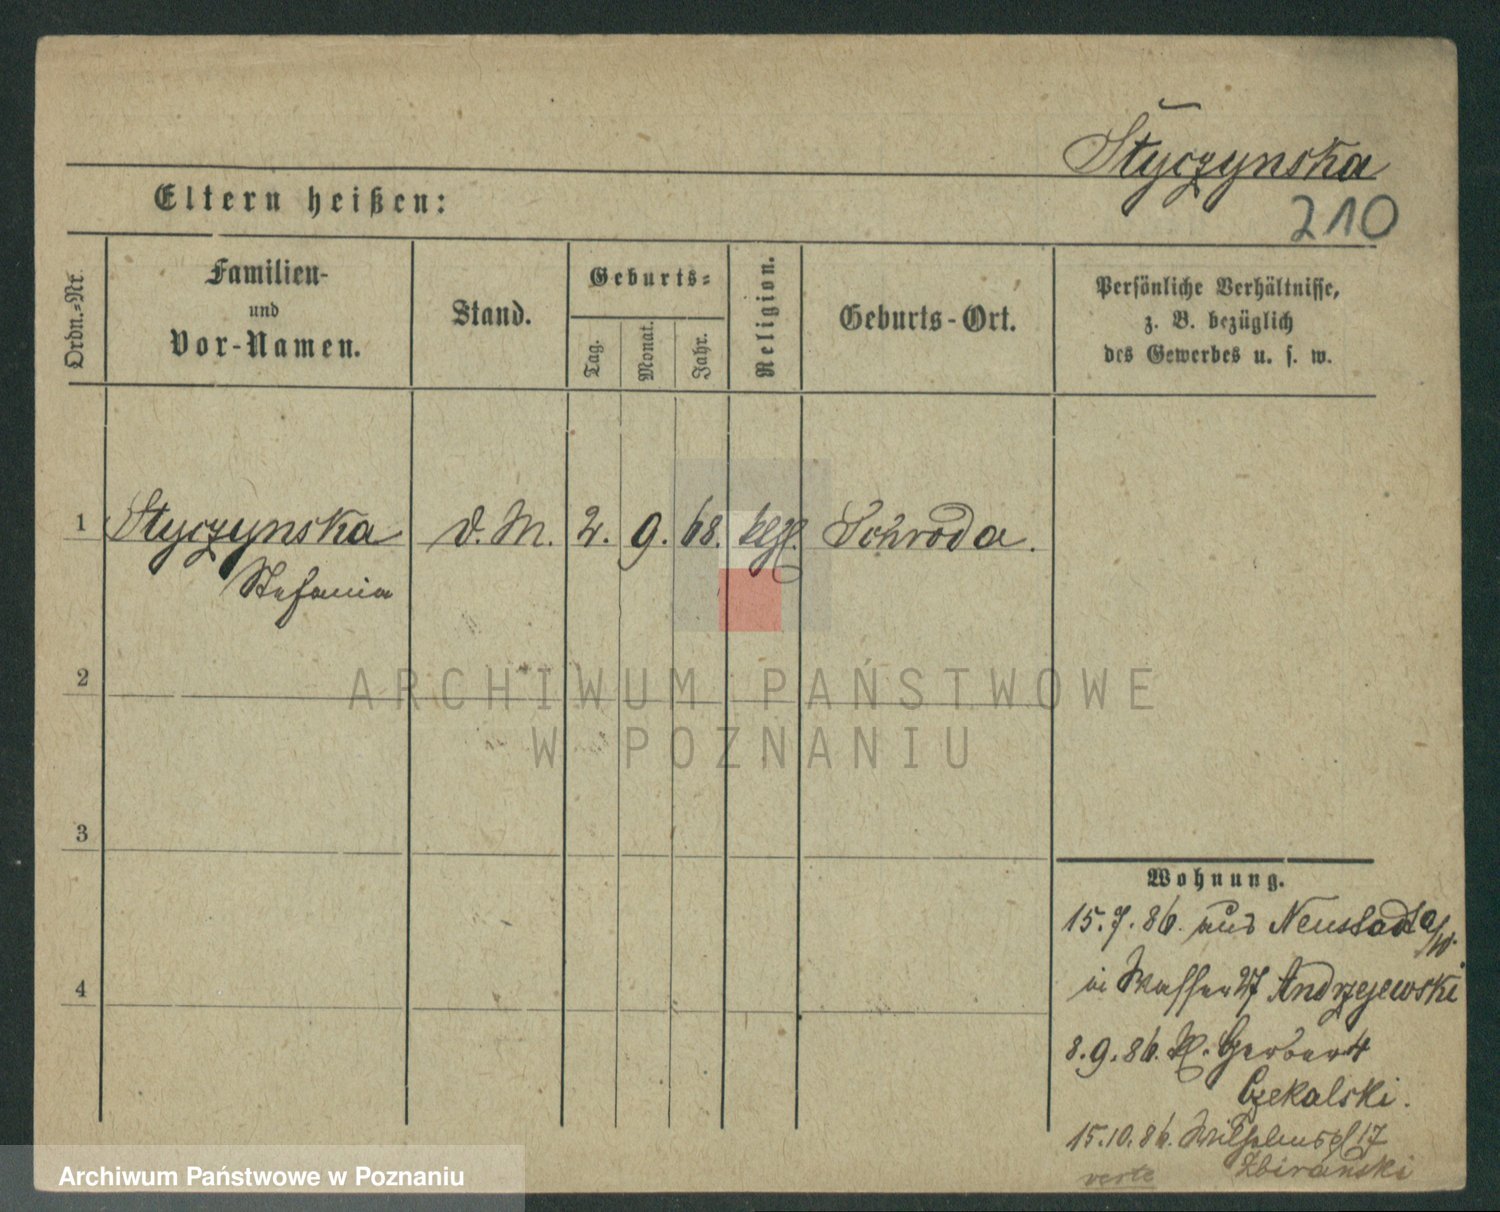 Styczynska
210
Eltern heißen:
Ordn.-Nr.
Familien-
und
Vor-Namen.
Stand.
Geburts-
Tag.
Monat.
Jahr.
Religion.
Geburts-Ort.
Persönliche Verhältnisse,
z. B. bezüglich
des Gewerbes u. s. w.
1 Styczynska d. M. 2. 9. 68. Schroda.
Stefania
2
ARCHIWUM PAŃSTWOWE
W POZNANIU
3
4
Wohnung.
15.7.86. aus Neustadt a/W.
in Wasser 27 Andrzejewski
8.9.86. Kl. Gerber 4
Czekalski.
15.10.86. Wilhelmspl 17
Zbiranski
verte
Archiwum Państwowe w Poznaniu